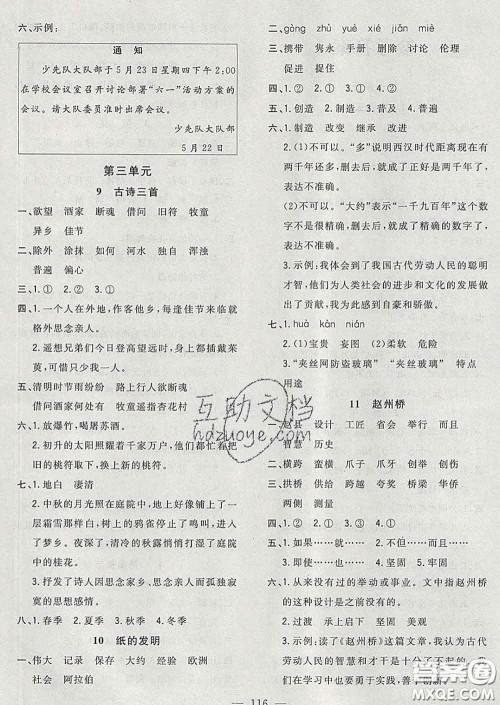 六、示例：
通　知
少先队大队部于5月23日星期四下午2:00
在学校会议室召开讨论部署“六一”活动方案的
会议。请大队委员准时出席会议。
少先队大队部
5月22日
第三单元
9　古诗三首
一、欲望　酒家　断魂　借问　旧符　牧童
异乡　佳节
二、除外　涂抹　如何　河水　独自　浑浊
普遍　偏心
三、①　②　②　①
四、1.一个人在外地，作客他乡，每逢佳节来临就
格外思念亲人。
2.遥想兄弟们今日登高望远时，头上插戴茱
萸，可惜只少我一人。
五、清明时节雨纷纷　路上行人欲断魂
借问酒家何处有　牧童遥指杏花村
六、1.放爆竹，喝屠苏酒。
2.初升的太阳照耀着千家万户，他们都忙着把
旧的桃符取下，换上新的桃符。
七、1.地白　凄清
2.中秋的月光照在庭院中，地上好像铺上了一
层霜雪那样白，树上的鸦雀停止了鸣叫，进入
了梦乡。夜深了，清冷的秋露悄悄打湿了庭院
中的桂花。
3.抒发了诗人因思念家乡、思念亲人而孤独寂
寞的思想感情。
八、1.春季　2.夏季　3.秋季　4.冬季
10　纸的发明
一、伟大　记录　保存　大约　经验　欧洲
社会　阿拉伯
二、gòng　zhù　yuē　xié　jiǎn　miè
三、携带　隽永　手册　删除　讨论　伦理
促进　捉住
四、②　①　②　①
五、1.创造　2.制造　3.普及　4.普遍
六、1.制造　改变　继承　改进
2.(1)不可以。“多”说明西汉时代距离现在有
两千年还多，删去后，就成了正好两千年了，
表达不准确。
(2)不可以。“大约”表示“一千九百年”这个
数字不是很精确，删去后就成了精确的数字了，
表达不准确。
3.示例：我体会到了我国古代劳动人民的聪明
才智，他们为人类社会的进步和文化的发展做
出了贡献，我为此感到自豪和骄傲。
七、1.huá　kàn　niǎn
2.(1)宝贵　妄图　(2)柔软　危险
3.“夹丝网防盗玻璃”　“夹丝玻璃”　特点
用途
11　赵州桥
一、赵县　设计　工匠　省会　举行　而且
智慧　历史
二、横跨　蛮横　爪子　爪牙　创伤　创举
三、拱桥　供给　跨越　夸奖　桥梁　华侨
两侧　测量
四、1.②　2.①　3.③　4.①
五、1.如果……就……　2.不但……而且……
3.即使……也……　4.坚固　5.牢固
六、1.从来没有过的举动或事业。文中指赵州桥的
设计。
2.过渡　承上启下　美观　坚固
3.示例：读了《赵州桥》这篇文章，我认识到古代
劳动人民的智慧和才干是十分了不起的，我们
在学习中要勇于实践，善于创新。
116
互助文档
hdzuoye.com
答案圈
MXQE.COM